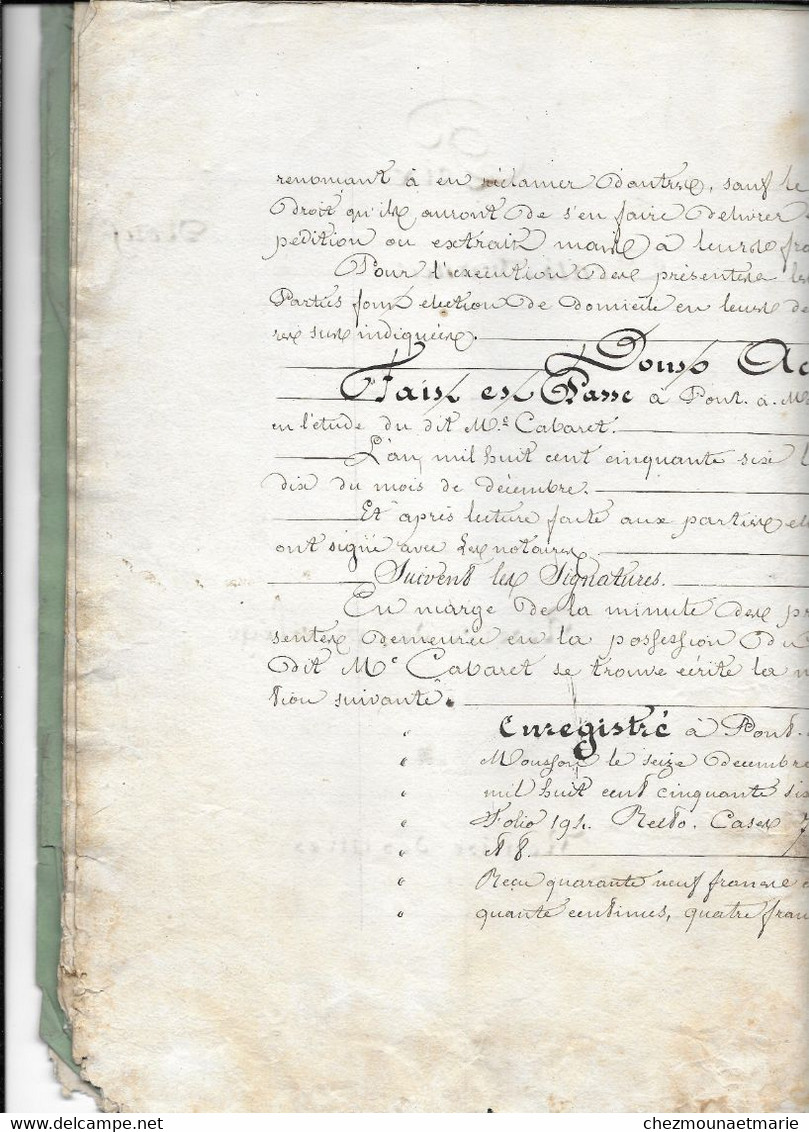 renonçant à en réclamer d'autres, sauf le
droit qu'ils auront de s'en faire délivrer
pedition ou extrait mais à leurs fra
Pour l'exécution des présentes les
Parties font election de domicile en leurs de
res sus indiquées.
Dont Ac
Fait et Passé à Pont. à. M
en l'étude du dit Me Cabaret.
L'an mil huit cent cinquante six l
dix du mois de décembre.
Et après lecture faite aux parties el
ont signé avec Les notaires
Suivent les Signatures.
En marge de la minute des pr
sentes demeurée en la possession du
dit Me Cabaret se trouve écrite la m
tion suivante.
" Enregistré à Pont.
" Mousson le seize Decembre
" mil huit cent cinquante six
" Folio 191. Recto. Cases 7
" et 8.
" Reçu quarante neuf francs c
" quante centimes, quatre fran
delcampe.net
chezmounaetmarie